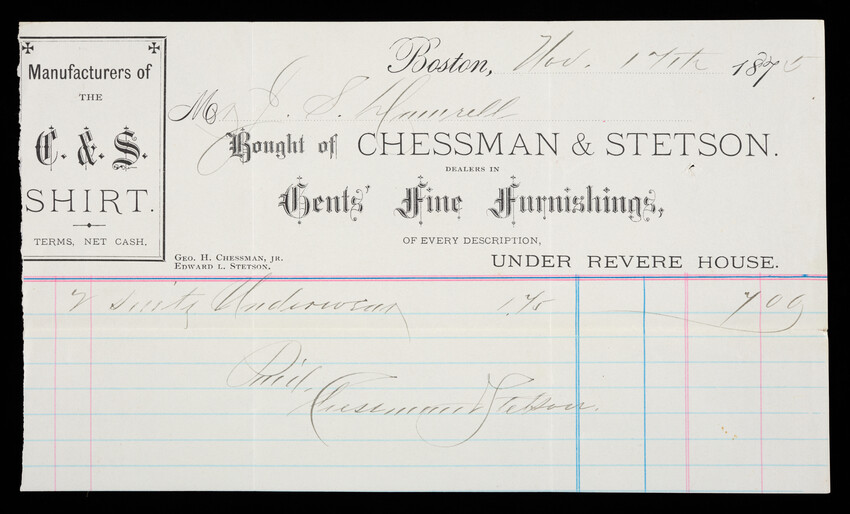 Manufacturers of
THE
C. & S.
SHIRT.
TERMS, NET CASH.
Boston, Nov. 17th 1875
M J. S. Dumrell
Bought of CHESSMAN & STETSON.
DEALERS IN
Gents' Fine Furnishings,
OF EVERY DESCRIPTION,
GEO. H. CHESSMAN, JR.
EDWARD L. STETSON.
UNDER REVERE HOUSE.
2 suits Underwear 1.75 7 00
Paid,
Chessman & Stetson.